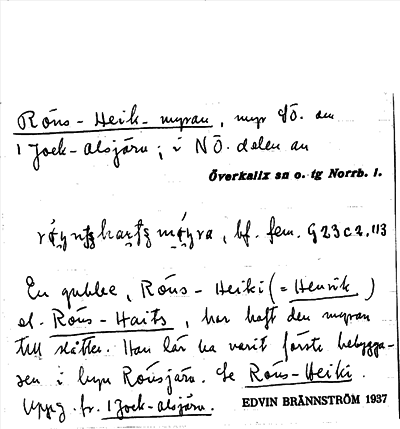 Róns-Heik-myran, myr SÖ. om
1 Jock-alsjärv; i NÖ. delen av
Överkalix sn o. tg Norrb. l.
bf. fem. G 23 c 2, 113
En gubbe, Róns-Heiki (= Henrik)
el. Róns-Haits, har haft den myran
till slåtter. Han lär ha varit förste bebygga-
ren i byn Rónsjärv. Se Róns-Heiki.
Uppg. fr. 1 Jock-alsjärv.
EDVIN BRÄNNSTRÖM 1937